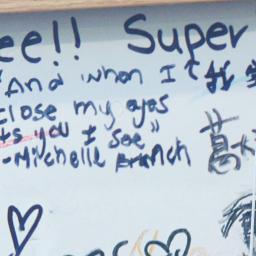 ee!! Super
"And when I
close my eyes
it's you I see"
-Michelle Branch